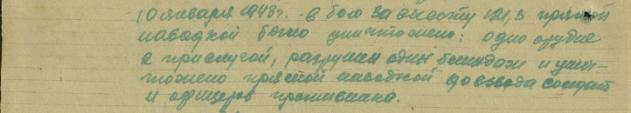 10 января 1943г. в бою за высоту 121,3 прямой
наводкой было уничтожено: одно орудие
с прислугой, разрушен один блиндаж и унич-
тожено прямой наводкой до взвода солдат
и офицеров противника.